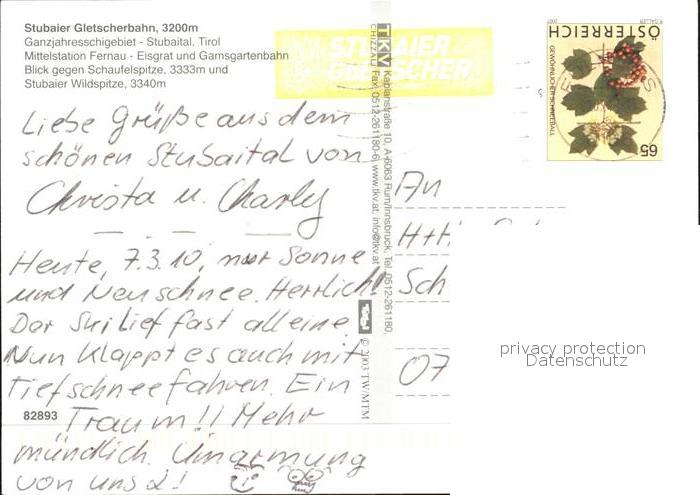 Stubaier Gletscherbahn, 3200m
Ganzjahresschigebiet - Stubaital, Tirol
Mittelstation Fernau - Eisgrat und Gamsgartenbahn
Blick gegen Schaufelspitze, 3333m und
Stubaier Wildspitze, 3340m
STUBAIER
GLETSCHER
Liebe Grüße aus dem
schönen Stubaital von
Christa u. Charly
Heute, 7.3.10, nur Sonne
und Neuschnee. Herrlich!
Der Ski lief fast alleine.
Nun klappt es auch mit
Tiefschneefahren. Ein
Traum!! Mehr
mündlich. Umarmung
von uns 2!
82893
TKV
CHIZZALI
Kaplanstraße 10, A-6063 Rum/Innsbruck, Tel. 0512-261180,
Fax: 0512-261180-6, www.tkv.at, info@tkv.at
Tirol
© 2003 TW/MTM
ÖSTERREICH
GEWÖHNLICHER SCHNEEBALL
65
An
H+H
Sch
07
privacy protection
Datenschutz